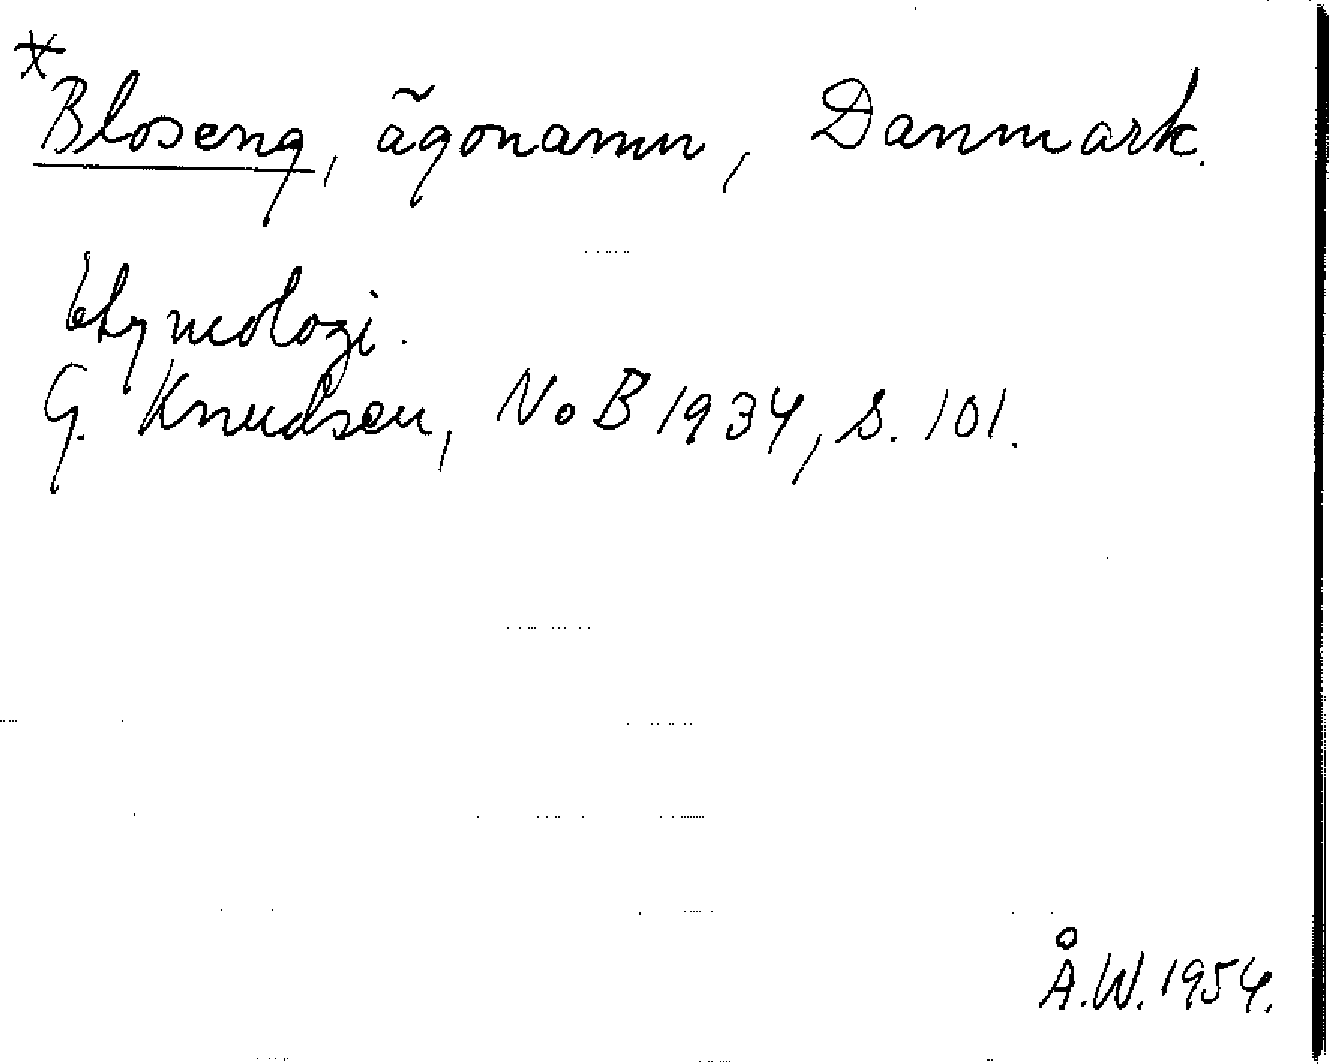 *Bloseng, ägonamn, Danmark.
Etymologi.
G. Knudsen, NoB 1934, s. 101.
Å.W. 1954.